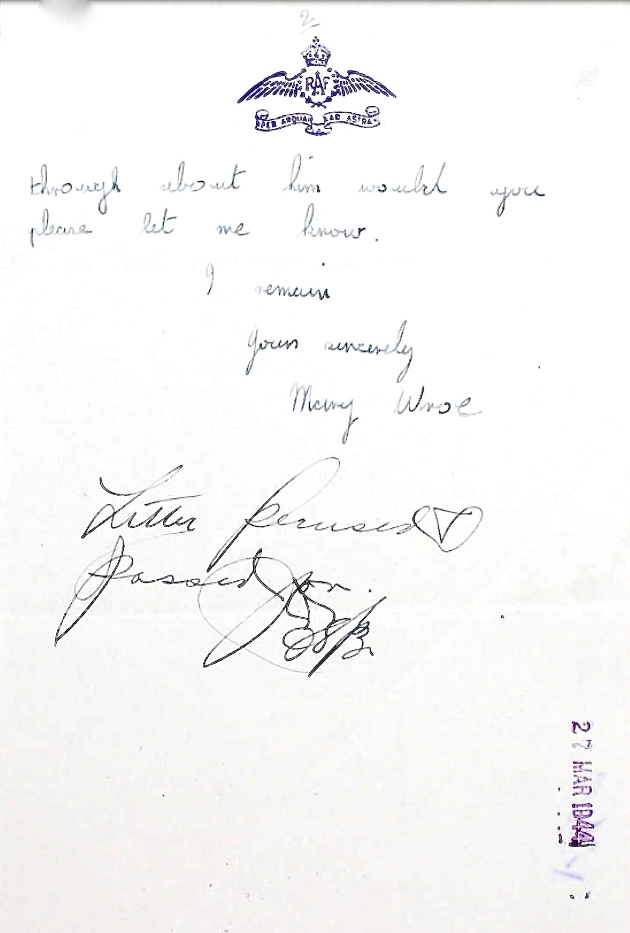 2
RAF
PER ARDUA AD ASTRA
through about him would you
please let me know.
I remain
Yours sincerely
Mary Wroe
Letter Perused &
passed on.
27 MAR 1944